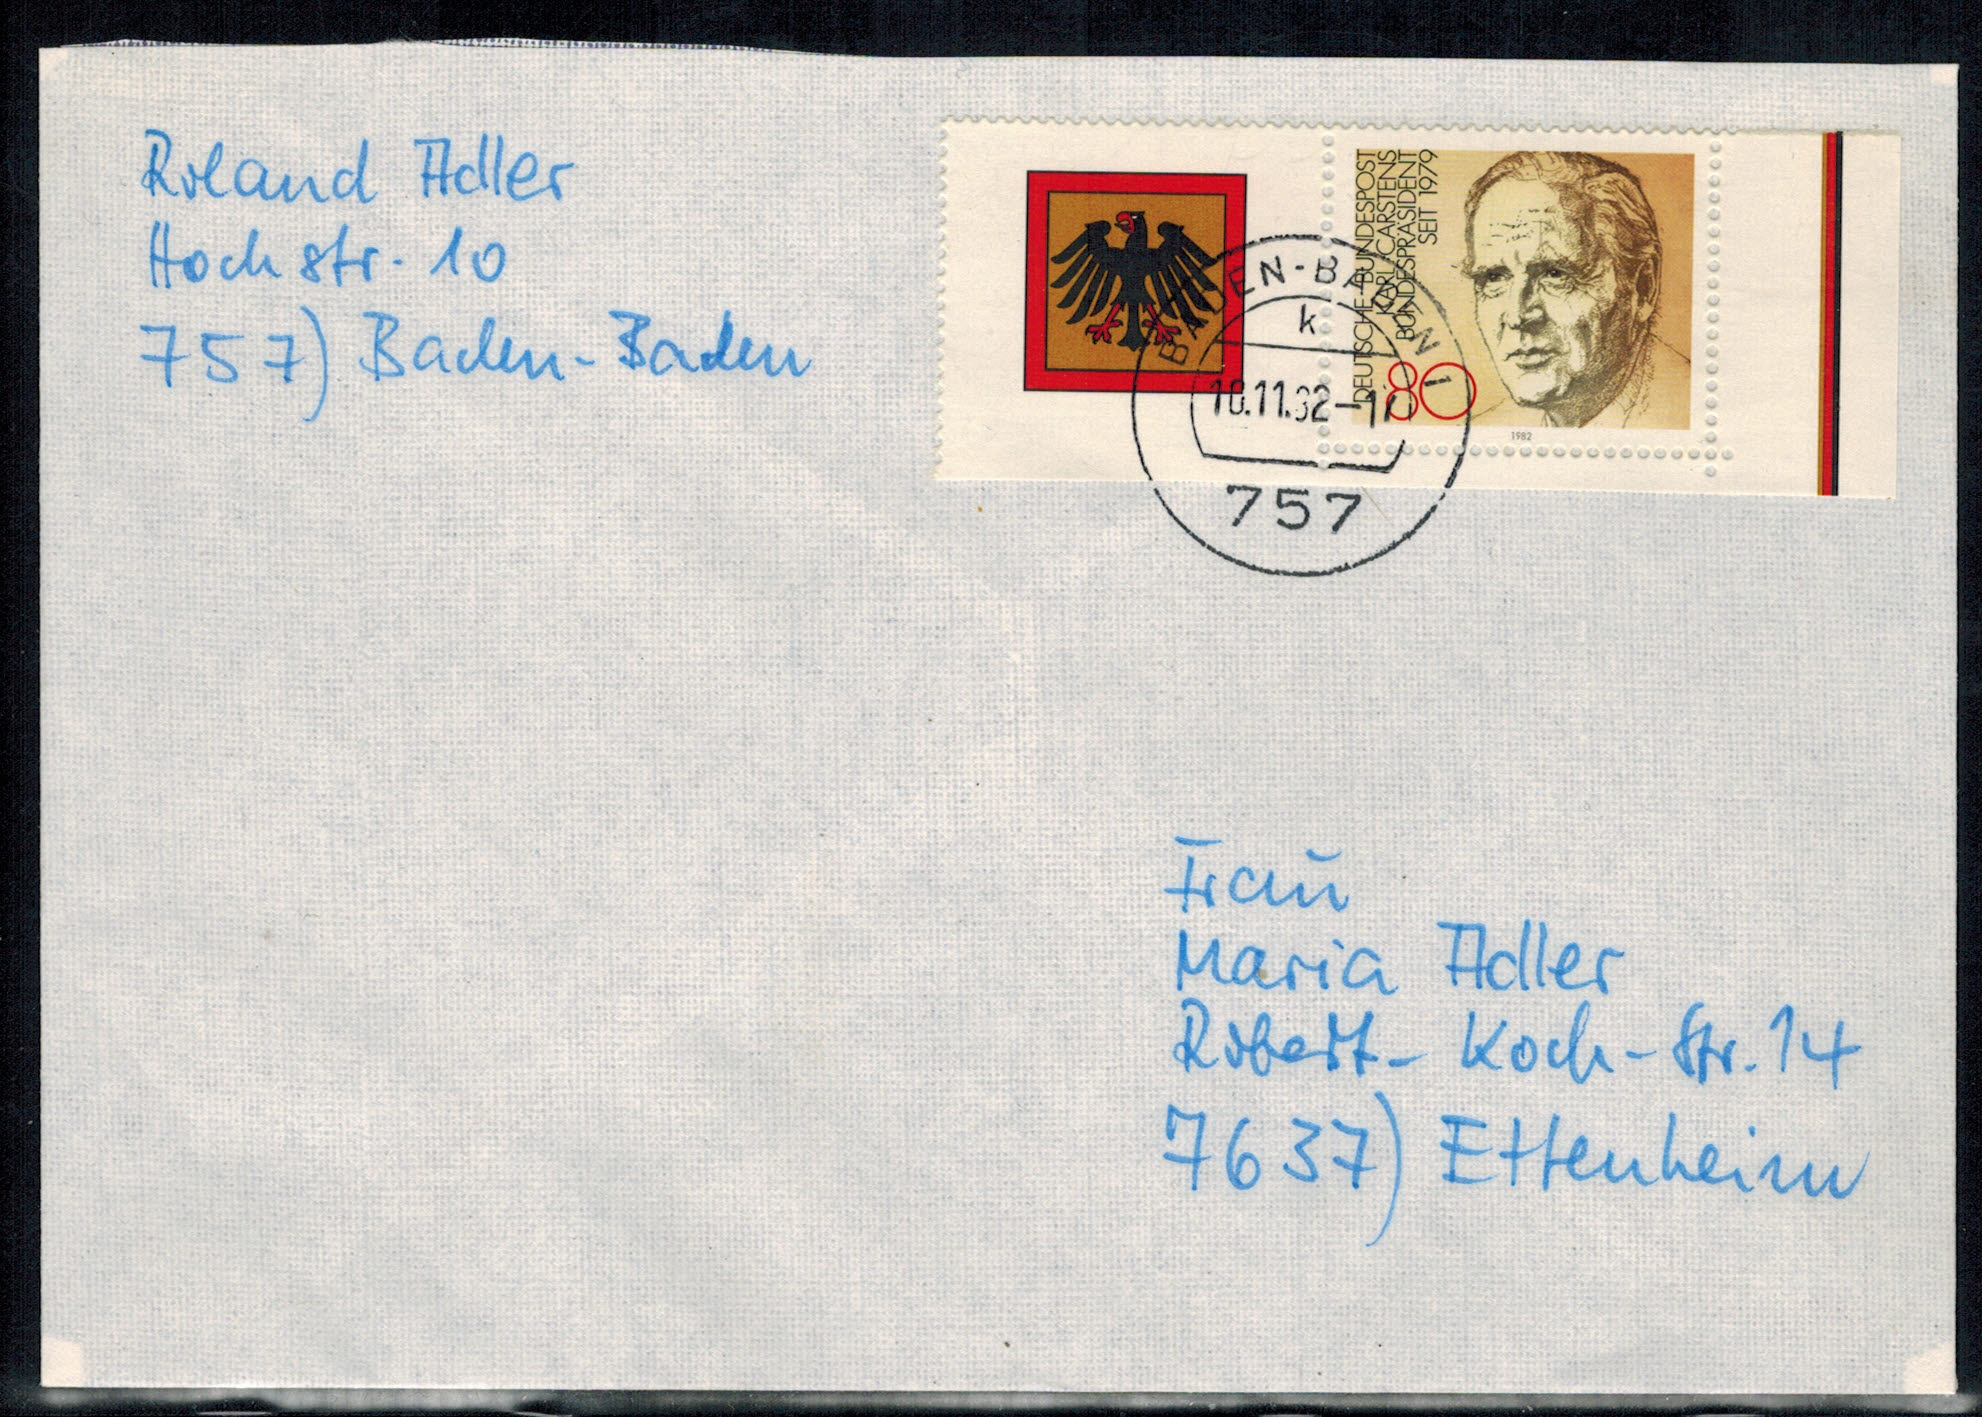 Roland Adler
Hochstr. 10
757) Baden-Baden
DEUTSCHE BUNDESPOST
KARL CARSTENS
BUNDESPRÄSIDENT
SEIT 1979
80
1982
BADEN-BADEN 1
k
18.11.82-17
757
Frau
Maria Adler
Robert-Koch-Str. 14
7637) Ettenheim